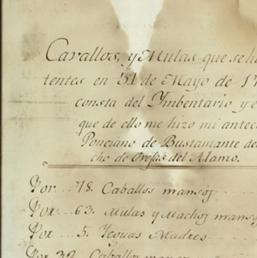 Cavallos, y Mulas que se ha
tentes en 31 de Mayo de 17
consta del Ymbentario y e
que de ello me hizo mi antec
Ponciano de Bustamante de
cho de Ovejas del Alamo.
Por.... 78. Caballos mansos
Por... 63. Mulas y Machos manso
Por.... 5. Yeguas Madres
Por 32. Caballos